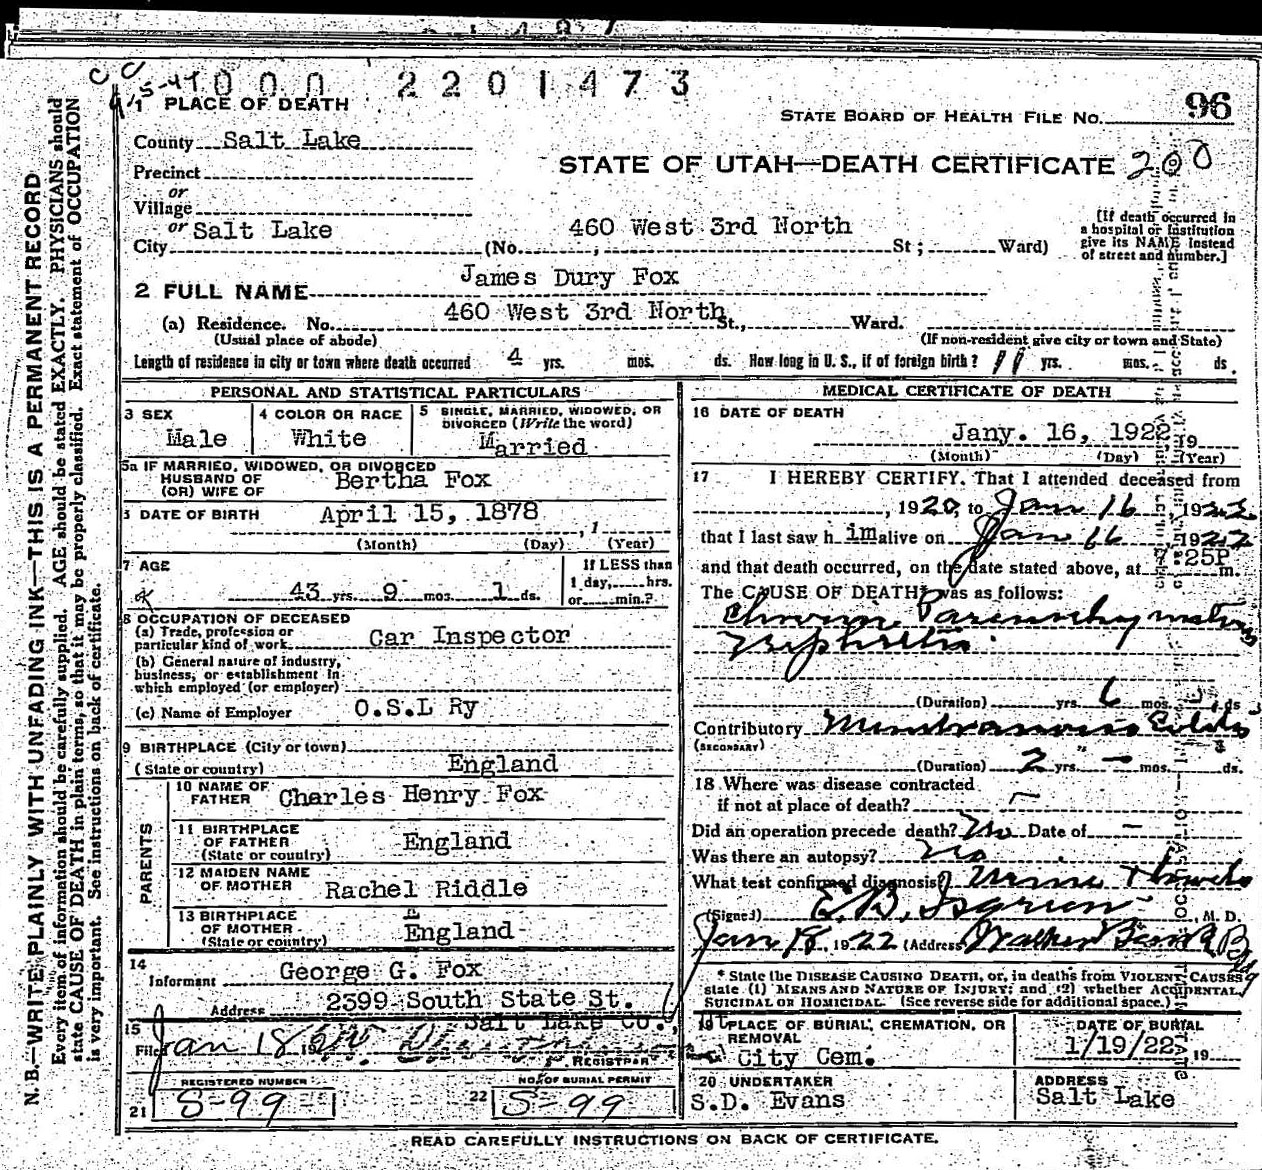 000 2201473
1 PLACE OF DEATH
STATE BOARD OF HEALTH FILE NO. 96
County Salt Lake
STATE OF UTAH—DEATH CERTIFICATE 200
Precinct
or
Village
or Salt Lake
City (No. 460 West 3rd North St; Ward)
[If death occurred in
a hospital or institution
give its NAME instead
of street and number.]
2 FULL NAME James Dury Fox
(a) Residence. No. 460 West 3rd North St., Ward.
(Usual place of abode) (If non-resident give city or town and State)
Length of residence in city or town where death occurred 4 yrs. mos. ds. How long in U. S., if of foreign birth? 11 yrs. mos. ds.
PERSONAL AND STATISTICAL PARTICULARS
3 SEX Male
4 COLOR OR RACE White
5 SINGLE, MARRIED, WIDOWED, OR
DIVORCED (Write the word)
Married
5a IF MARRIED, WIDOWED, OR DIVORCED
HUSBAND OF
(OR) WIFE OF Bertha Fox
6 DATE OF BIRTH April 15, 1878 , 1
(Month) (Day) (Year)
7 AGE
43 yrs. 9 mos. 1 ds.
If LESS than
1 day, hrs.
or min.?
8 OCCUPATION OF DECEASED
(a) Trade, profession or
particular kind of work Car Inspector
(b) General nature of industry,
business, or establishment in
which employed (or employer)
(c) Name of Employer O.S.L Ry
9 BIRTHPLACE (City or town)
(State or country) England
PARENTS
10 NAME OF
FATHER Charles Henry Fox
11 BIRTHPLACE
OF FATHER England
(State or country)
12 MAIDEN NAME
OF MOTHER Rachel Riddle
13 BIRTHPLACE
OF MOTHER England
(State or country)
14
Informant George G. Fox
Address 2399 South State St.
Salt Lake Co.,
15
Filed Jan 18
REGISTRAR
REGISTERED NUMBER
21 S-99
NO. OF BURIAL PERMIT
22 S-99
MEDICAL CERTIFICATE OF DEATH
16 DATE OF DEATH
Jany. 16, 1922 19
(Month) (Day) (Year)
17 I HEREBY CERTIFY, That I attended deceased from
, 1920, to Jan 16, 1922
that I last saw h im alive on Jan 16 1922
and that death occurred, on the date stated above, at 25P m.
The CAUSE OF DEATH was as follows:
Chronic Parenchymatous
Nephritis
(Duration) yrs. 6 mos. ds
Contributory
(SECONDARY)
(Duration) 2 yrs. – mos. ds.
18 Where was disease contracted
if not at place of death? –
Did an operation precede death? No Date of –
Was there an autopsy? No
What test confirmed diagnosis? Urine
(Signed) E. B. , M. D.
Jan 18, 1922 (Address Walker Bank B
* State the DISEASE CAUSING DEATH, or, in deaths from VIOLENT CAUSES
state (1) MEANS AND NATURE OF INJURY; and (2) whether ACCIDENTAL,
SUICIDAL OR HOMICIDAL. (See reverse side for additional space.)
19 PLACE OF BURIAL, CREMATION, OR
REMOVAL
City Cem.
DATE OF BURIAL
1/19/22 19
20 UNDERTAKER
S.D. Evans
ADDRESS
Salt Lake
READ CAREFULLY INSTRUCTIONS ON BACK OF CERTIFICATE.
N. B.—WRITE PLAINLY WITH UNFADING INK—THIS IS A PERMANENT RECORD
Every item of information should be carefully supplied. AGE should be stated EXACTLY. PHYSICIANS should
state CAUSE OF DEATH in plain terms, so that it may be properly classified. Exact statement of OCCUPATION
is very important. See instructions on back of certificate.